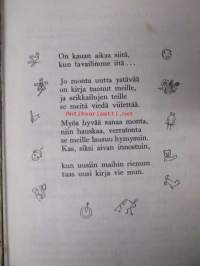 On kauan aikaa siitä,
kun tavailimme iitä...
Jo monta uutta ystävää
on kirja tuonut meille,
ja seikkailujen teille
se meitä viedä viilettää.
Myös hyvää sanaa monta,
niin hauskaa, verratonta
se meille lausuu hymysuin.
Kas, siksi aivan innostuin,
kun uusiin maihin riemuin
taas uusi kirja vie mun.